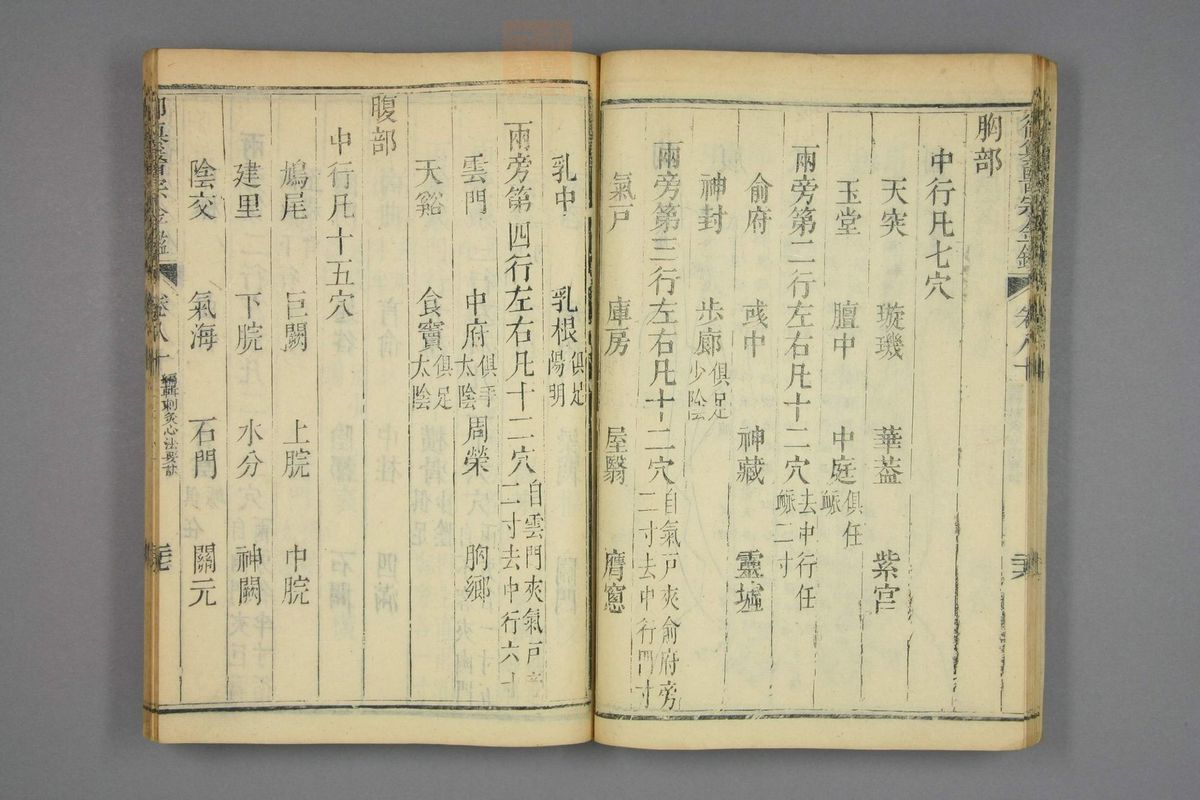 御纂醫宗金鑑 卷八十 三六
胸部
中行凡七穴
天突 璇璣 華蓋 紫宮
玉堂 膻中 中庭 俱任脈
兩旁第二行左右凡十二穴 去中行任脈二寸
俞府 彧中 神藏 靈墟
神封 步廊 俱足少陰
兩旁第三行左右凡十二穴 自氣戶夾俞府旁二寸去中行四寸
氣戶 庫房 屋翳 膺窻
乳中 乳根 俱足陽明
兩旁第四行左右凡十二穴 自雲門夾氣戶旁二寸去中行六寸
雲門 中府 俱手太陰 周榮 胸鄉
天谿 食竇 俱足太陰
腹部
中行凡十五穴
鳩尾 巨闕 上脘 中脘
建里 下脘 水分 神闕
陰交 氣海 石門 關元
御纂醫宗金鑑 卷八十 編輯刺灸心法要訣 三七